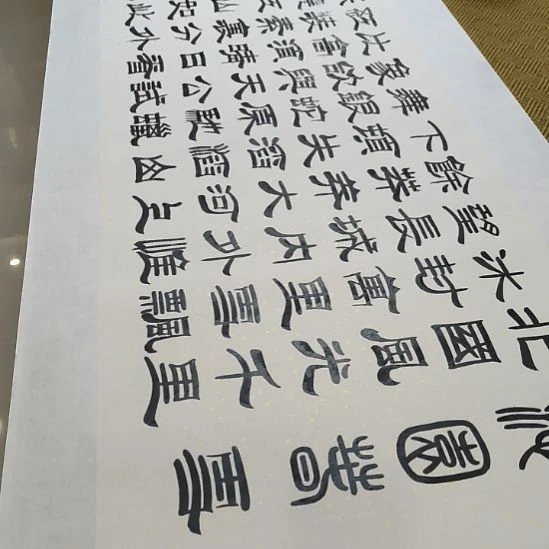 沁園春雪
北國風光千里
冰封萬里雪飄
望長城內外惟
餘莽莽大河上
下頓失滔滔山
舞銀蛇原馳蠟
象欲與天公試
比高須晴日看
紅裝素裹分外
江山如此